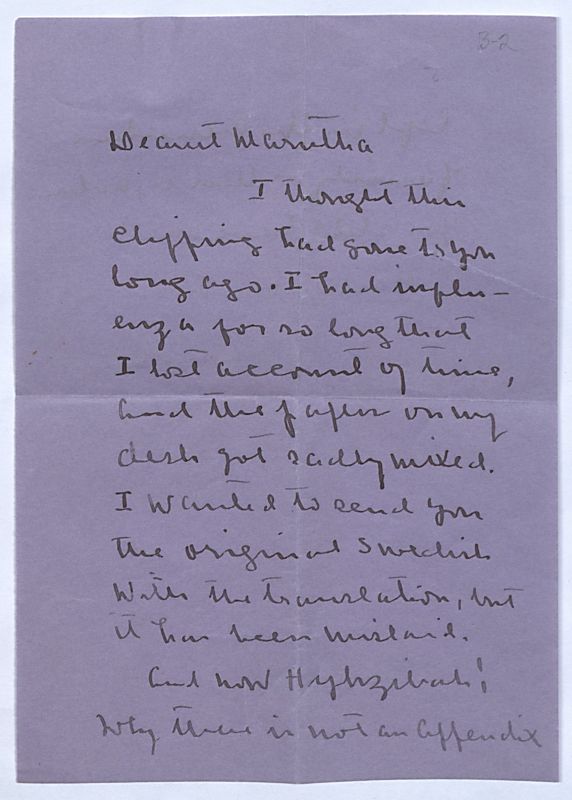 B-2
Dearest Marutha
I thought this
clipping had gone to you
long ago. I had influ-
enza for so long that
I lost account of time,
and the papers on my
desk got sadly mixed.
I wanted to send you
the original Swedish
with the translation, but
it has been mislaid.
And now Hephzibah!
Why there is not an appendix